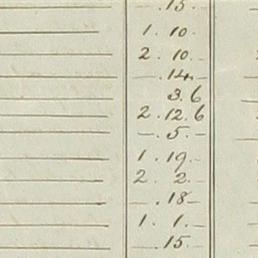 —.15.—
1.10.—
2.10.—
—.14.—
3.6
2.12.6
—.5.—
1.19.—
2.2.—
—.18—
1.1.—
—.15.—